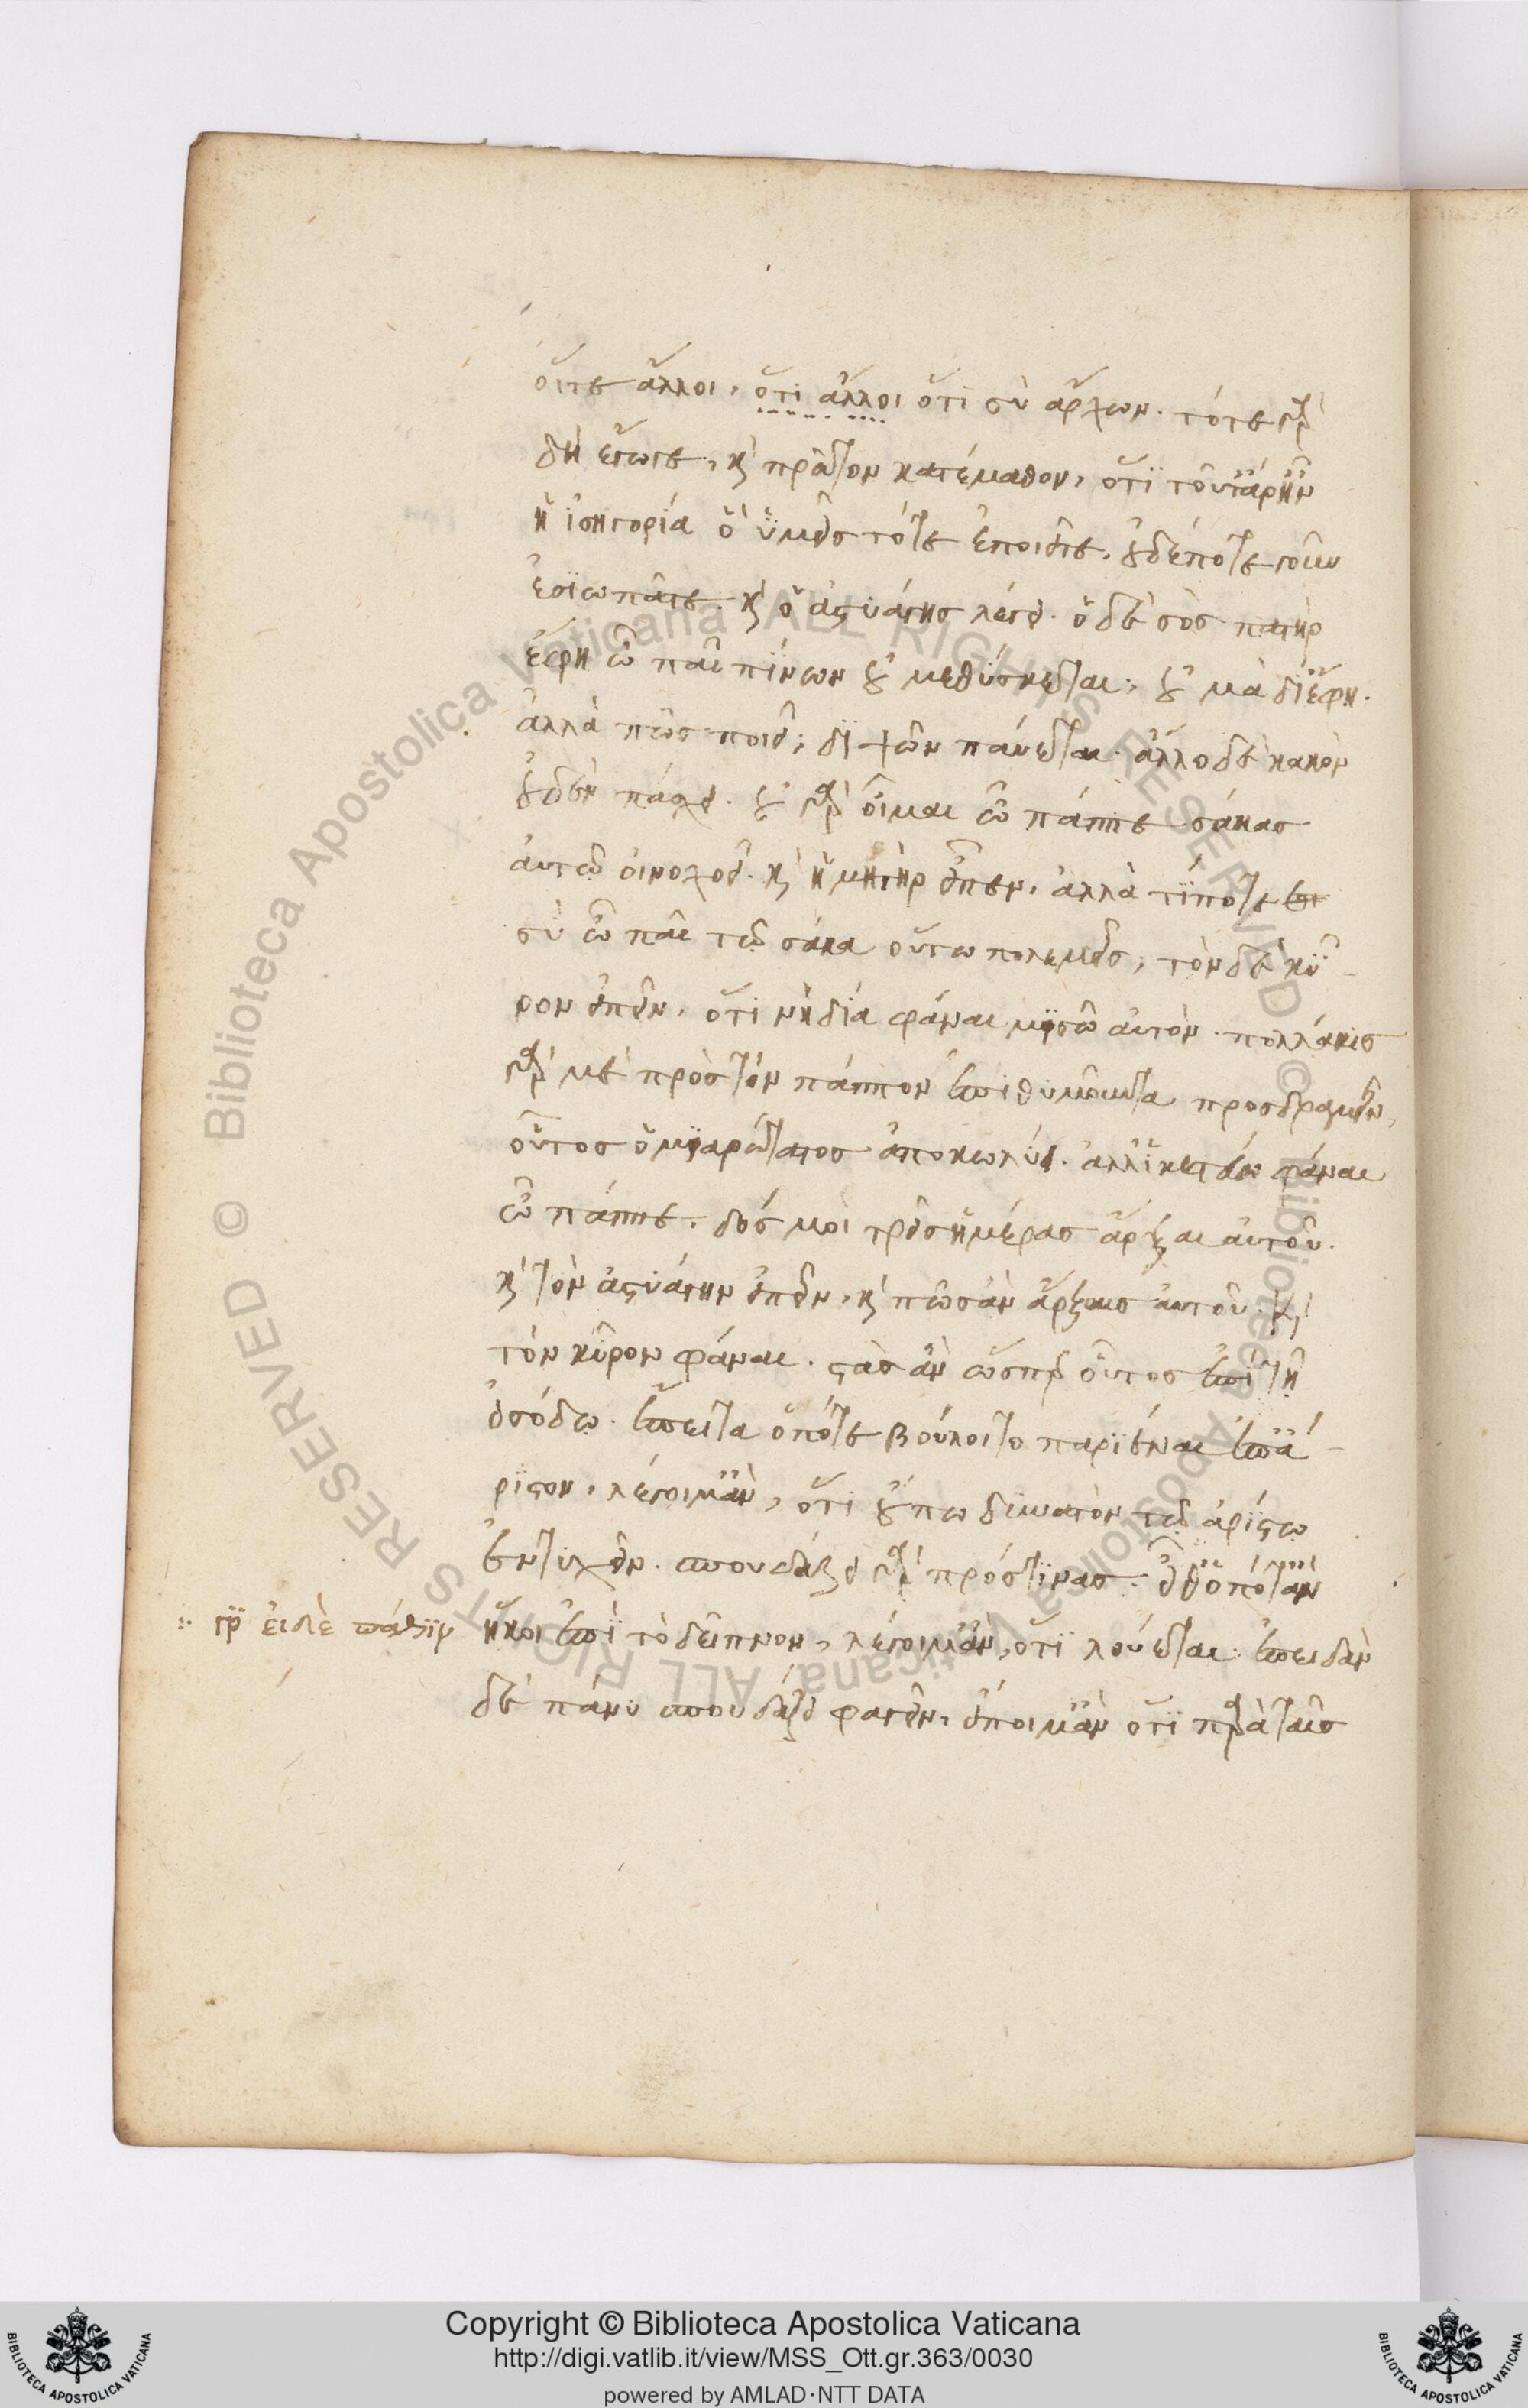 οἵτε ἄλλοι, ὅτι ἄλλοι ὅτι σὺ ἄρχων. τότε γὰρ
δὴ ἔγωγε, καὶ πρῶτον κατέμαθον, ὅτι τοῦτ' ἄρ' ἦν
ἡ ἰσηγορία ὃ ὑμεῖς τότε ἐποιεῖτε. οὐδέποτε γοῦν
ἐσιωπᾶτε. καὶ ὁ ἀστυάγης λέγει. ὁ δὲ σὸς πατὴρ
ἔφη ὦ παῖ πίνων οὐ μεθύσκεται; οὐ μὰ δί' ἔφη.
ἀλλὰ πῶς ποιεῖ; διψῶν παύεται. ἄλλο δὲ κακὸν
οὐδὲν πάσχει. οὐ γὰρ οἶμαι ὦ πάππε σάκας
αὐτῷ οἰνοχοεῖ. καὶ ἡ μήτηρ εἶπεν. ἀλλὰ τί ποτε
σὺ ὦ παῖ τῷ σάκα οὕτω πολεμεῖς; τὸν δὲ κῦ-
ρον εἰπεῖν. ὅτι νὴ δία φάναι μισῶ αὐτόν. πολλάκις
γάρ με πρὸς τὸν πάππον ἐπιθυμοῦντα προσδραμεῖν,
οὗτος ὁ μιαρώτατος ἀποκωλύει. ἀλλ' ἱκετεύω φάναι
ὦ πάππε. δός μοι τρεῖς ἡμέρας ἄρξαι αὐτοῦ.
καὶ τὸν ἀστυάγην εἰπεῖν, καὶ πῶς ἂν ἄρξαις αὐτοῦ. καὶ
τὸν κῦρον φάναι. στὰς ἂν ὥσπερ οὗτος ἐπὶ τῇ
εἰσόδῳ. ἔπειτα ὁπότε βούλοιτο παριέναι ἐπ' ἄ-
ριστον, λέγοιμ' ἂν, ὅτι οὔπω δυνατὸν τῷ ἀρίστῳ
ἐντυχεῖν. σπουδάζει γὰρ πρός τινας. εἶθ' ὁπόταν
ἥκοι ἐπὶ τὸ δεῖπνον, λέγοιμ' ἂν, ὅτι λούεται. ἐπειδὰν
δὲ πάνυ σπουδάζει φαγεῖν, εἴποιμ' ἂν ὅτι παρὰ ταῖς
Copyright © Biblioteca Apostolica Vaticana
http://digi.vatlib.it/view/MSS_Ott.gr.363/0030
powered by AMLAD·NTT DATA
BIBLIOTECA APOSTOLICA VATICANA
BIBLIOTECA APOSTOLICA VATICANA